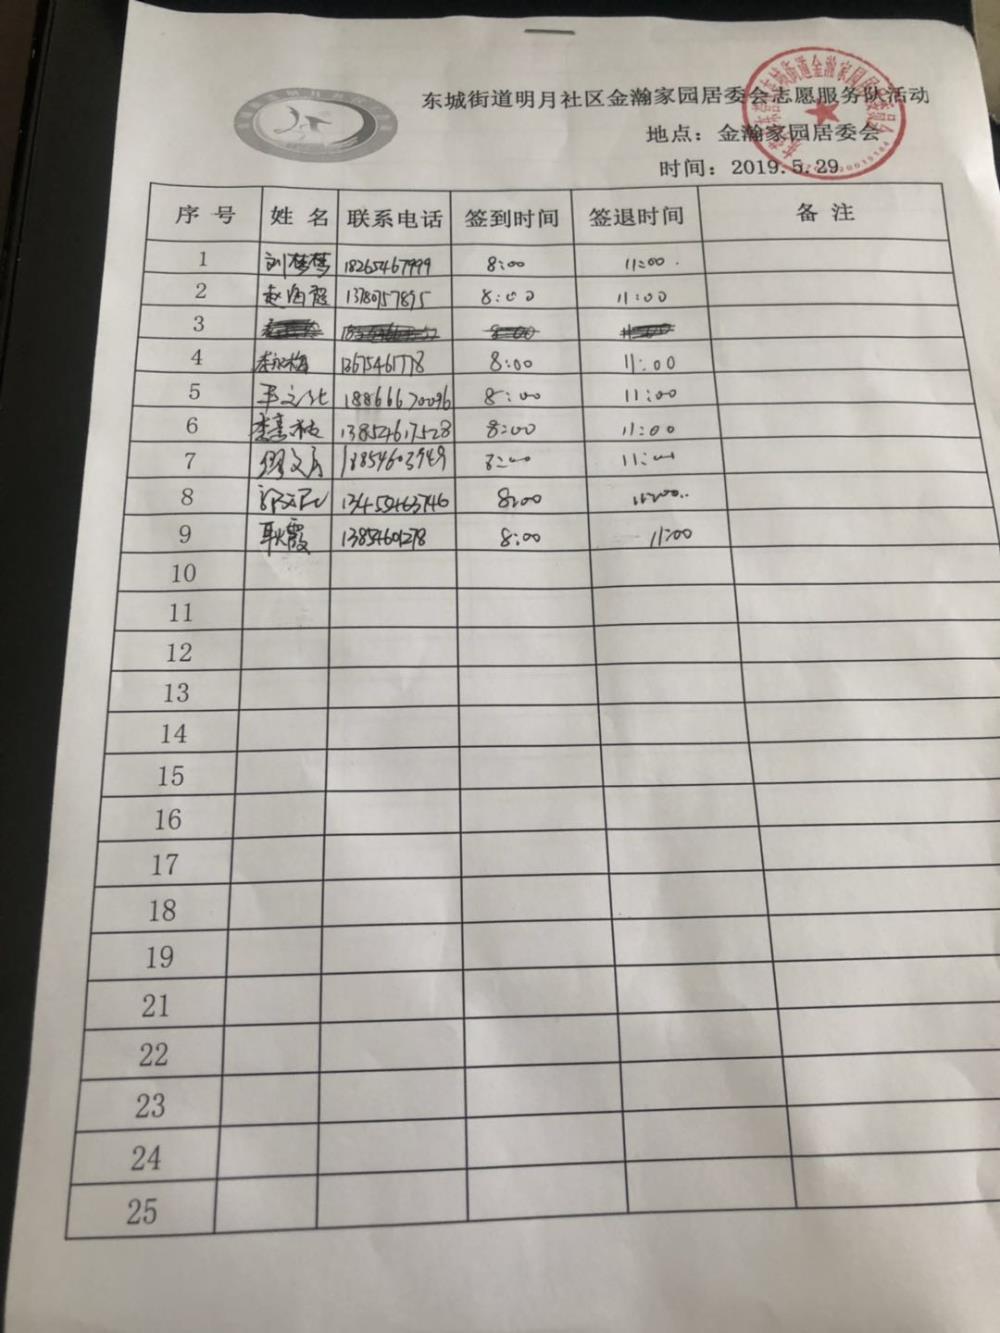 东城街道明月社区金瀚家园居委会志愿服务队活动
地点：金瀚家园居委会
时间：2019.5.29
序号 姓名 联系电话 签到时间 签退时间 备注
1 刘梦梦 18265467999 8:00 11:00.
2 赵海霞 13780757895 8:00 11:00
3
4 李永梅 13675461778 8:00 11:00
5 18866670096 8:00 11:00
6 13854617528 8:00 11:00
7 18854603949 8:00 11:00
8 13455463746 8:00 11:00..
9 耿霞 13854601278 8:00 11:00
10
11
12
13
14
15
16
17
18
19
21
22
23
24
25